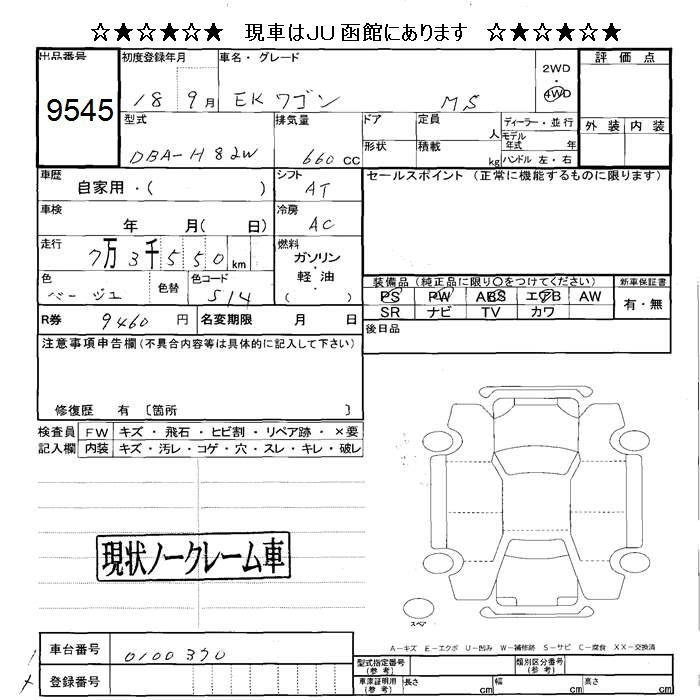 ☆★☆★☆★ 現車はJU函館にあります ☆★☆★☆★
出品番号 初度登録年月 車名・グレード 2WD 評価点
9545 18 9月 EKワゴン MS 4WD
型式 排気量 ドア 定員 人 ディーラー・並行 外装 内装
モデル年式 年
DBA-H82W 660cc 形状 積載 kg ハンドル 左・右
車歴 自家用・( ) シフト AT セールスポイント (正常に機能するものに限ります)
車検 年 月( 日) 冷房 AC
走行 7万3千550km 燃料 ガソリン・軽油 ( )
色 ベージュ 色替 色コード S14
装備品 (純正品に限り〇をつけてください) 新車保証書
PS PW ABS エアB AW 有・無
SR ナビ TV カワ
R券 9460円 名変期限 月 日 後日品
注意事項申告欄(不具合内容等は具体的に記入して下さい)
修復歴 有 〔箇所 〕
検査員 FW キズ・飛石・ヒビ割・リペア跡・×要
記入欄 内装 キズ・汚レ・コゲ・穴・スレ・キレ・破レ
現状ノークレーム車
スペア
A-キズ E-エクボ U-凹み W-補修跡 S-サビ C-腐食 XX-交換済
車台番号 0100390
登録番号
型式指定番号(参考) 類別区分番号(参考)
車庫証明用(参考) 長さ cm 幅 cm 高さ cm